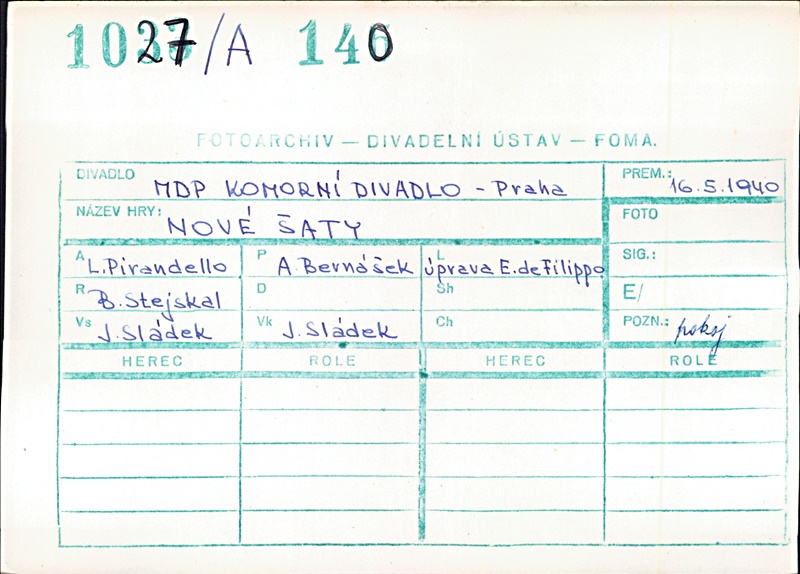 1027/A 140
FOTOARCHIV — DIVADELNÍ ÚSTAV — FOMA.
DIVADLO MDP KOMORNÍ DIVADLO - Praha PREM.: 16.5.1940
NÁZEV HRY: NOVÉ ŠATY FOTO
A L. Pirandello P A. Bernášek L úprava E. de Filippo SIG.:
R B. Stejskal D Sh E/
Vs J. Sládek Vk J. Sládek Ch POZN.: pokoj
HEREC ROLE HEREC ROLE